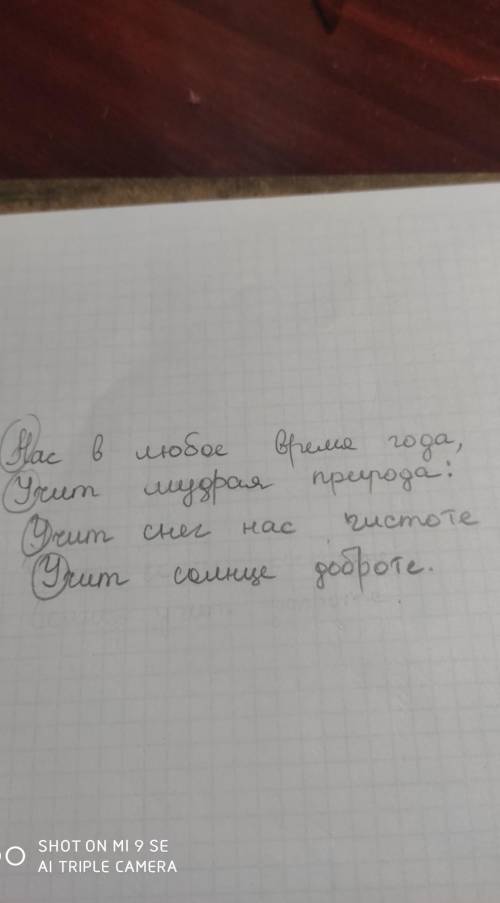 Нас в любое время года,
Учит мудрая природа:
Учит снег нас чистоте
Учит солнце доброте.
SHOT ON MI 9 SE
AI TRIPLE CAMERA